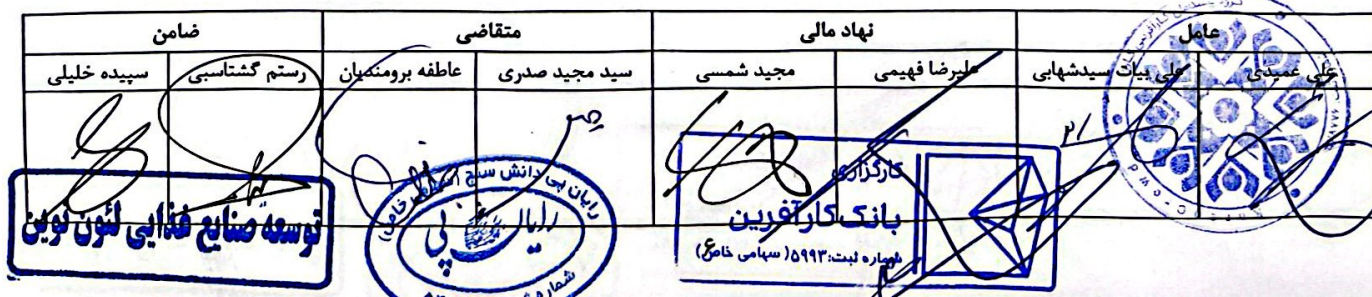 عامل	نهاد مالی	متقاضی	ضامن
علی عمیدی	علی بیات سیدشهابی	علیرضا فهیمی	مجید شمسی	سید مجید صدری	عاطفه برومندیان	رستم گشتاسبی	سپیده خلیلی
کارگزاری
بانک کارآفرین
شماره ثبت:۵۹۹۳( سهامی خاص)
رایان پی دانش سنج
رایان پی
شماره
توسعه صنایع غذایی لئون نوین